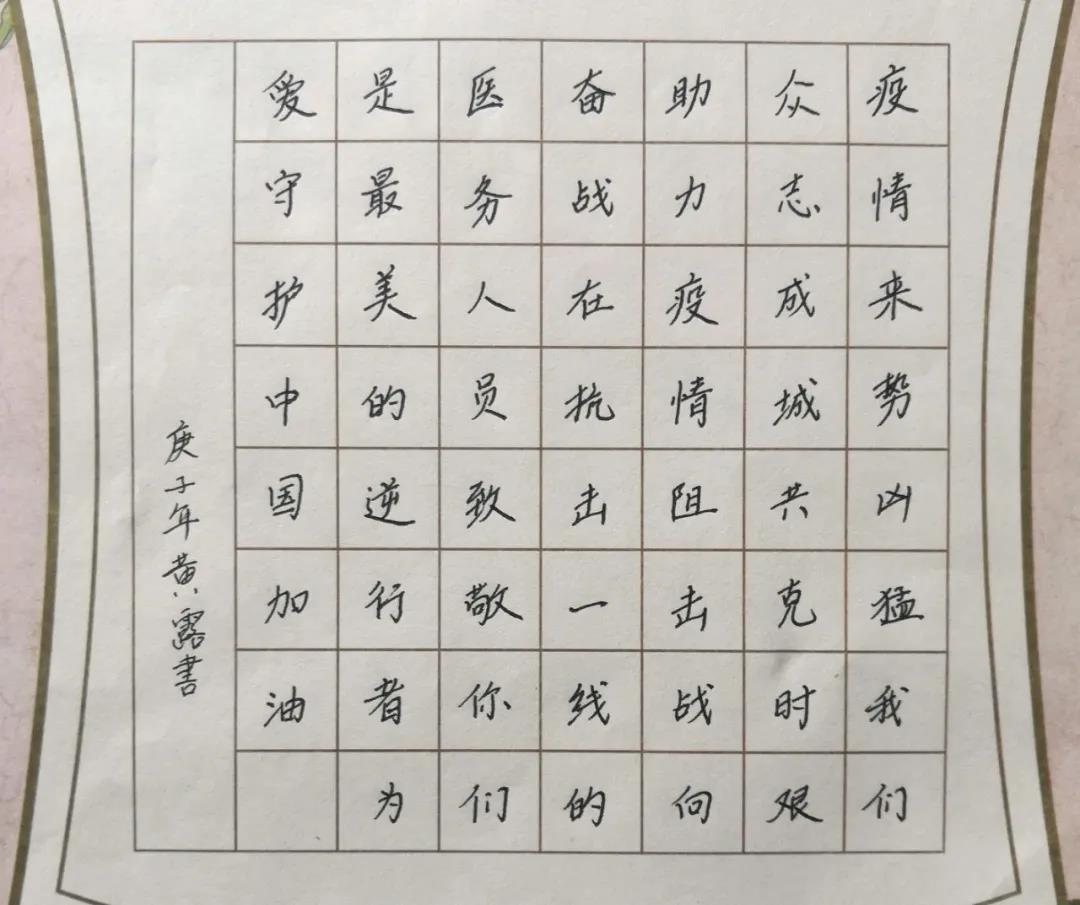 疫情来势凶猛我们
众志成城共克时艰
助力疫情阻击战向
奋战在抗击一线的
医务人员致敬你们
是最美的逆行者为
爱守护中国加油
庚子年黄露書